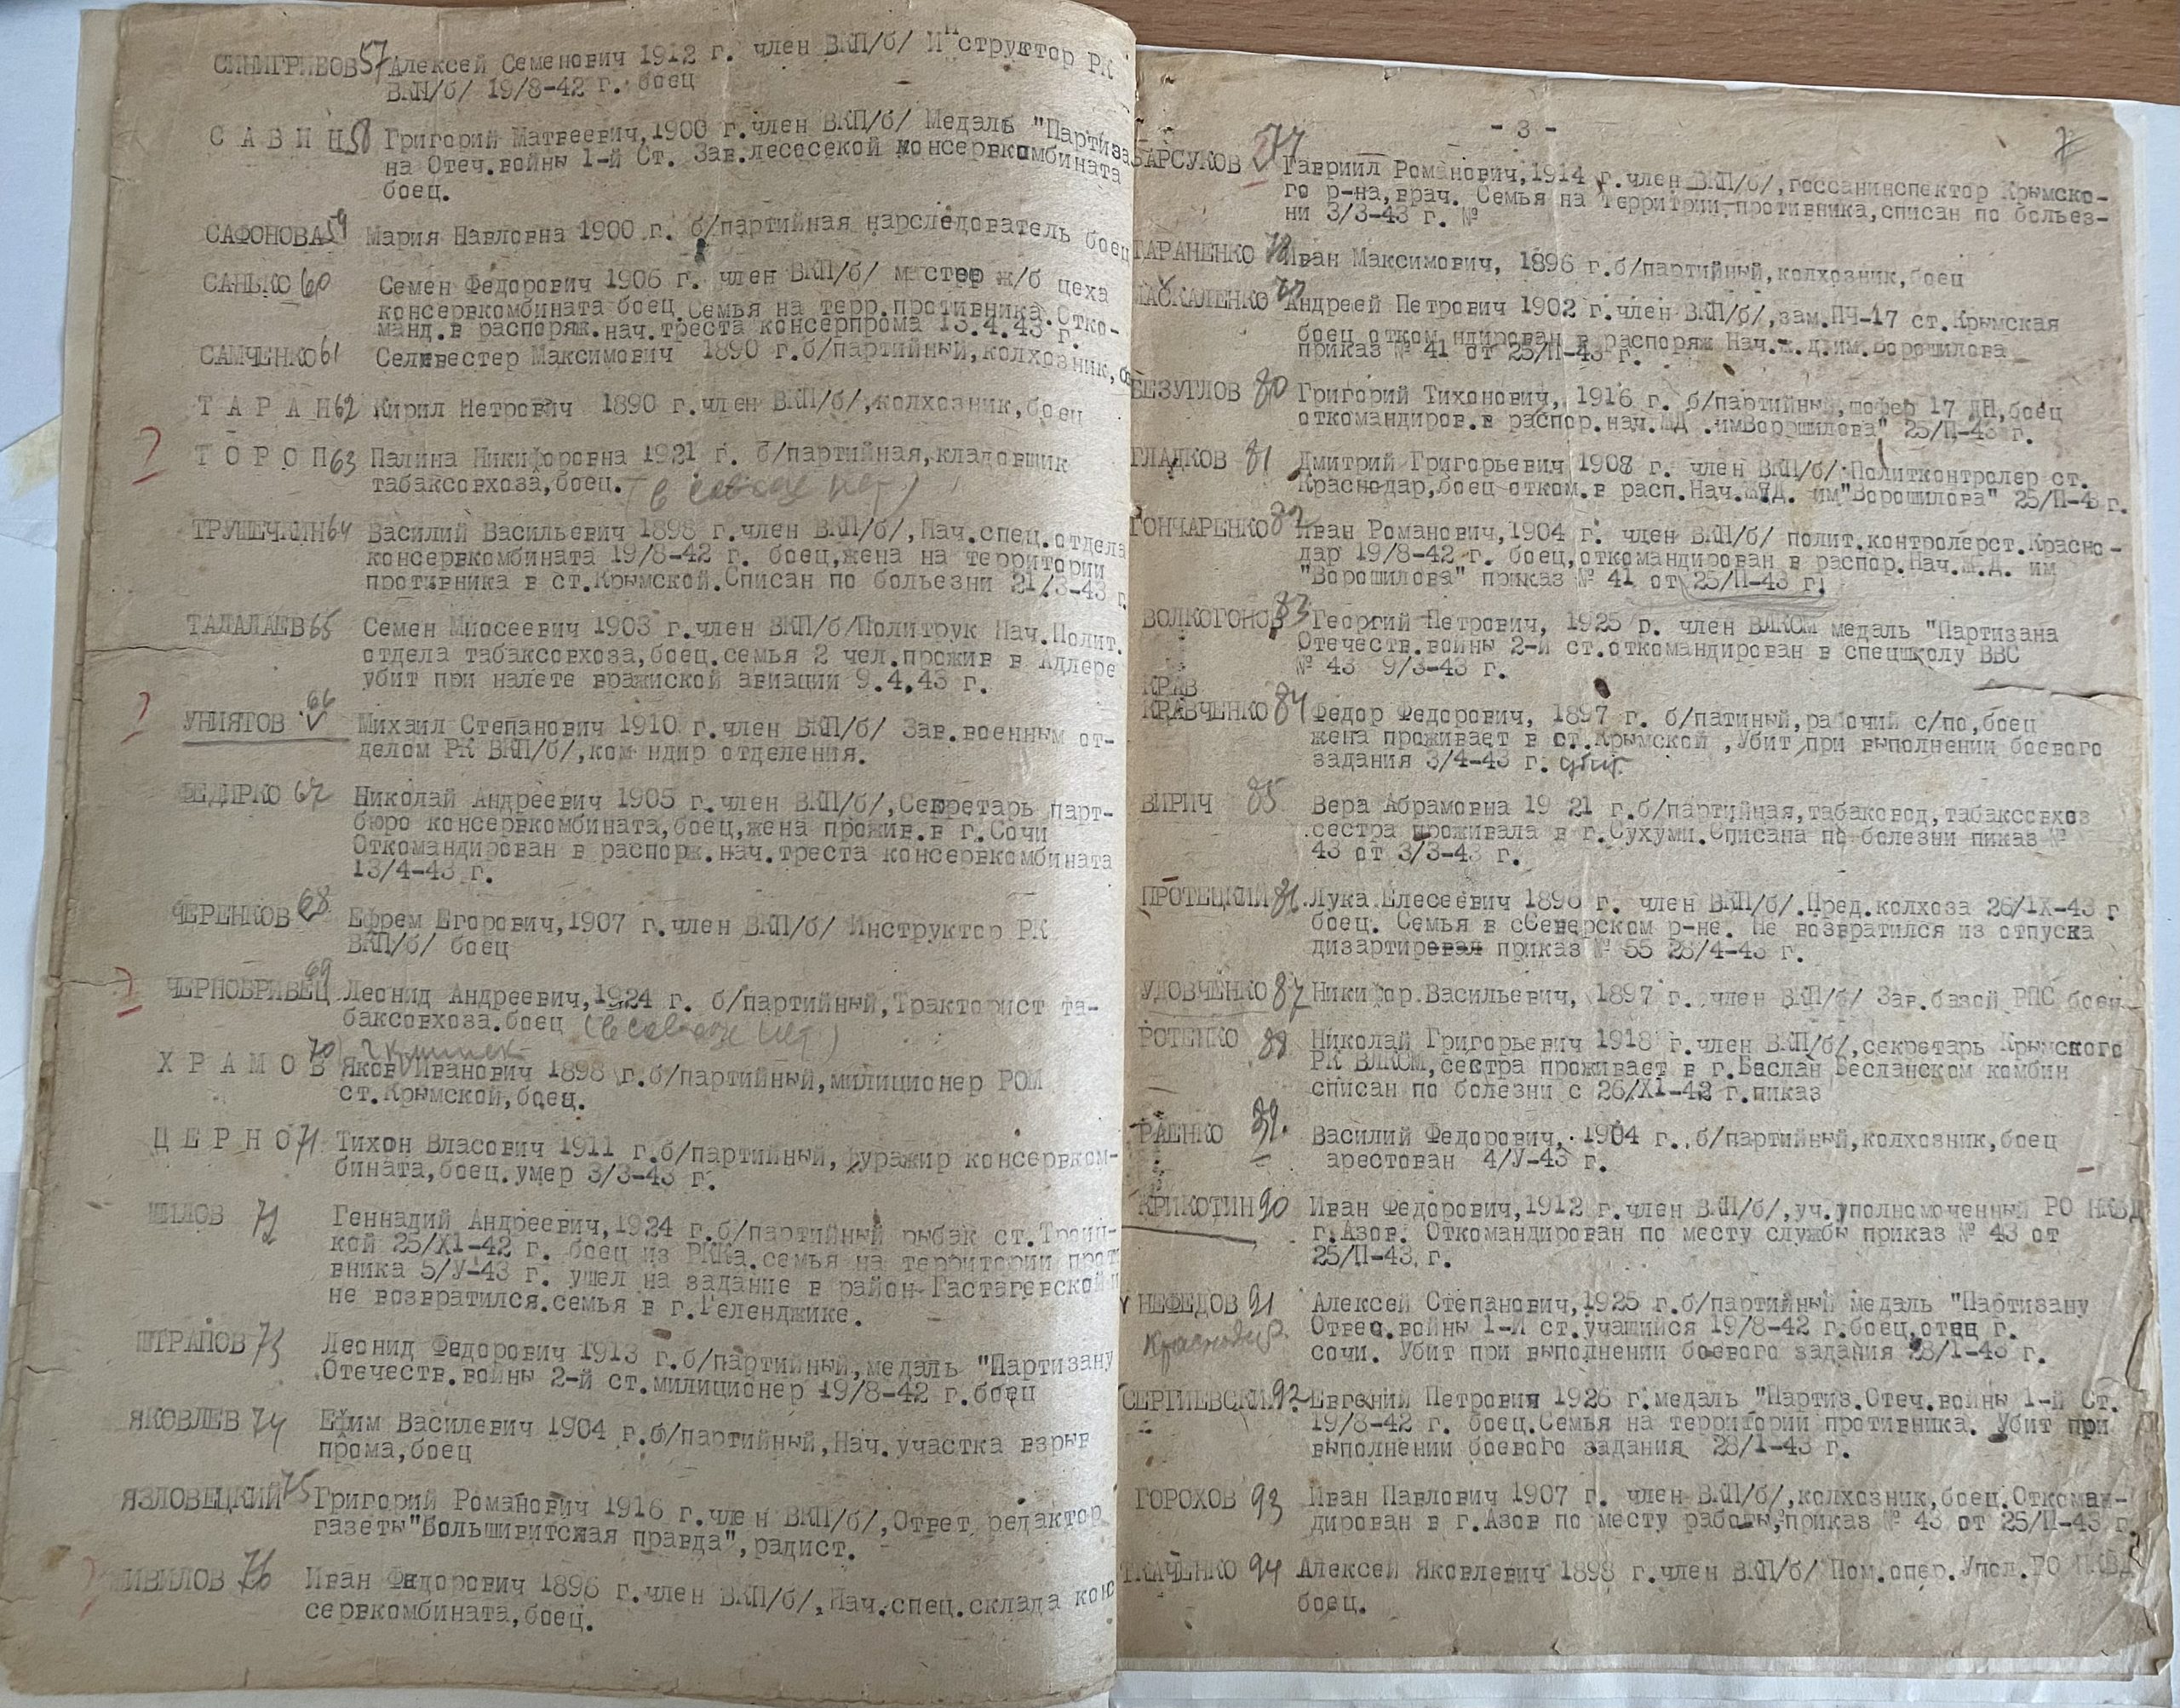 СИНИГРИБОВ 57 Алексей Семенович 1912 г. член ВКП/б/ Инструктор РК
ВКП/б/ 19/8-42 г. боец
С А В И Н 58 Григорий Матвеевич,1900 г.член ВКП/б/ Медаль "Партиза
на Отеч.войны 1-й Ст. Зав.лесосекой консервкомбината
боец.
САФОНОВА 59 Мария Павловна 1900 г. б/партийная нарследователь боец
САНЬКО 60 Семен Федорович 1906 г. член ВКП/б/ мастер ж/б цеха
консервкомбината боец.Семья на терр.противника.Отко-
манд.в распоряж.нач.треста консерпрома 13.4.43 г.
САМЧЕНКО 61 Селивестер Максимович 1890 г.б/партийный,колхозник,
Т А Р А Н 62 Кирил Петрович 1890 г.член ВКП/б/,колхозник,боец
Т О Р О П 63 Палина Никифоровна 1921 г. б/партийная,кладовщик
табаксовхоза,боец.
ТРУШЕЧКИН 64 Василий Васильевич 1898 г.член ВКП/б/,Нач.спец.отдела
консервкомбината 19/8-42 г. боец,жена на территории
противника в ст.Крымской.Списан по больезни 21/3-43 г.
ТАЛАЛАЕВ 65 Семен Миосеевич 1903 г.член ВКП/б/Политрук Нач.Полит.
отдела табаксовхоза,боец.семья 2 чел.прожив в Адлере
убит при налете вражиской авиации 9.4.43 г.
УНИЯТОВ 66 Михаил Степанович 1910 г.член ВКП/б/ Зав.военным от-
делом РК ВКП/б/,командир отделения.
ФЕДИРКО 67 Николай Андреевич 1905 г.член ВКП/б/,Секретарь парт-
бюро консервкомбината,боец,жена прожив.в г.Сочи
Откомандирован в распорж.нач.треста консервкомбината
13/4-43 г.
ЧЕРЕНКОВ 68 Ефрем Егорович,1907 г.член ВКП/б/ Инструктор РК
ВКП/б/ боец
ЧЕРНОБРИВЕЦ 69 Леонид Андреевич,1924 г. б/партийный,Тракторист та-
баксовхоза.боец
Х Р А М О В 70 Яков Иванович 1898 г.б/партийный,милиционер РОМ
ст.Крымской,боец.
Ц Е Р Н О 71 Тихон Власович 1911 г.б/партийный, фуражир консервком-
бината,боец.умер 3/3-43 г.
ШИЛОВ 72 Геннадий Андреевич,1924 г.б/партийный рыбак ст.Троиц-
кой 25/XI-42 г. боец из РККа.семья на территории прот
вника 5/У-43 г. ушел на задание в район Гастагевской и
не возвратился.семья в г.Геленджике.
ШТРАПОВ 73 Леонид Федорович 1913 г.б/партийный,медаль "Партизану
Отечеств.войны 2-й ст.милиционер 19/8-42 г.боец
ЯКОВЛЕВ 74 Ефим Василевич 1904 г.б/партийный,Нач.участка взрыв
прома,боец
ЯЗЛОВЕЦКИЙ 75 Григорий Романович 1916 г.член ВКП/б/,Ответ редактор
газеты"Большивитсжая правда",радист.
ИВИЛОВ 76 Иван Федорович 1896 г.член ВКП/б/,Нач.спец.склада кон
сервкомбината,боец.
- 3 -
БАРСУКОВ 77 Гавриил Романович,1914 г.член ВКП/б/,госсанинспектор Крымско-
го р-на,врач. Семья на территрии противника,списан по больез-
ни 3/3-43 г. №
ТАРАНЕНКО 78 Иван Максимович, 1896 г.б/партийный,колхозник,боец
79 Андреей Петрович 1902 г.член ВКП/б/,зам.ПЧ-17 ст.Крымская
боец откомндирован в распоряж Нач.ж.д.им.Ворошилова
приказ № 41 от 25/П-43 г.
БЕЗУГЛОВ 80 Григорий Тихонович, 1916 г. б/партийный,шофер 17 ДН,боец
откомандиров.в распор.нач.ЖД .имВорошилова" 25/П-43 г.
ГЛАДКОВ 81 Дмитрий Григорьевич 1908 г. член ВКП/б/ Политконтролер ст.
Краснодар,боец отком.в расп.Нач.ЖД. им"Ворошилова" 25/П-43 г.
ГОНЧАРЕНКО 82 Иван Романович,1904 г. член ВКП/б/ полит.контролерст.Красно-
дар 19/8-42 г. боец,откомандирован в распор.Нач.Ж.Д. им
"Ворошилова" приказ № 41 от 25/П-43 г.
ВОЛКОГОНОВ 83 Георгий Петрович, 1925 г. член ВЛКСМ медаль "Партизана
Отечеств.войны 2-й ст.откомандирован в спецшколу ВВС
№ 43 9/3-43 г.
КРАВ
КРАВЧЕНКО 84 Федор Федорович, 1897 г. б/патиный,рабочий с/по,боец
жена проживает в ст.Крымской ,Убит при выполнении боевого
задания 3/4-43 г. убит
ВИРИЧ 85 Вера Абрамовна 19 21 г.б/партийная,табаковод,табаксовхоз
сестра проживала в г.Сухуми.Списана по болезни пиказ №
43 от 3/3-43 г.
ПРОТЕЦКИЙ 86. Лука Елесеевич 1896 г. член ВКП/б/.Пред.колхоза 26/IX-43 г
боец. Семья в сСеверском р-не. Не возвратился из отпуска
дизартировал приказ № 55 28/4-43 г.
УДОВЧЕНКО 87 Никифор.Васильевич, 1897 г. член ВКП/б/ Зав.базой РПС боец
РОТЕНКО 88 Николай Григорьевич 1918 г.член ВКП/б/,секретарь Крымского
РК ВЛКСМ,сестра проживает в г.Беслан Бесланском комбин
списан по болезни с 26/XI-42 г.пиказ
РАЕНКО 89. Василий Федорович, 1904 г. б/партийный,колхозник,боец
арестован 4/У-43 г.
КРИКОТИН 90 Иван Федорович,1912 г.член ВКП/б/,уч.уполномоченный РО НКВД
г.Азов. Откомандирован по месту службы приказ № 43 от
25/П-43 г.
НЕФЕДОВ 91 Алексей Степанович,1925 г.б/партийный медаль "Партизану
Краснодар. Отвес.войны 1-й ст.учашийся 19/8-42 г.боец,отец г.
сочи. Убит при выполнении боевого задания 28/1-43 г.
СЕРГИЕВСКИЙ 92 Евгений Петрович 1926 г.медаль "Партиз.Отеч.войны 1-й Ст.
19/8-42 г. боец.Семья на территории противника. Убит при
выполнении боевого задания 28/1-43 г.
ГОРОХОВ 93 Иван Павлович 1907 г. член ВКП/б/,колхозник,боец.Откоман-
дирован в г.Азов по месту работы,приказ № 43 от 25/П-43 г.
ТКАЧЕНКО 94 Алексей Яковлевич 1898 г.член ВКП/б/ Пом.опер.Упол.РО НКВД
боец.